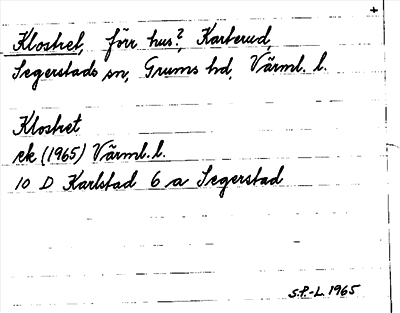 Klostret, förr hus?, Karterud,
Segerstads sn, Grums hd, Värml. l.
Klostret
ek (1965) Värml. l.
10 D Karlstad 6 a Segerstad
S.P.-L. 1965